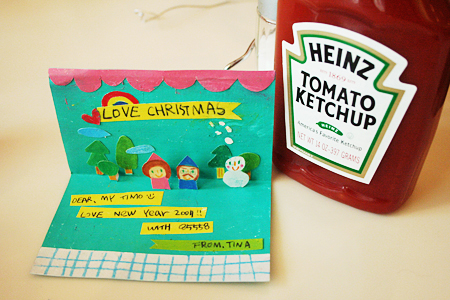 LOVE CHRISTMAS
DEAR, MY TIMO
LOVE NEW YEAR 2009!!
WITH
FROM, TINA
HEINZ
TOMATO
KETCHUP
HEINZ
America's Favorite Ketchup
NET WT 14 OZ (397 GRAMS)